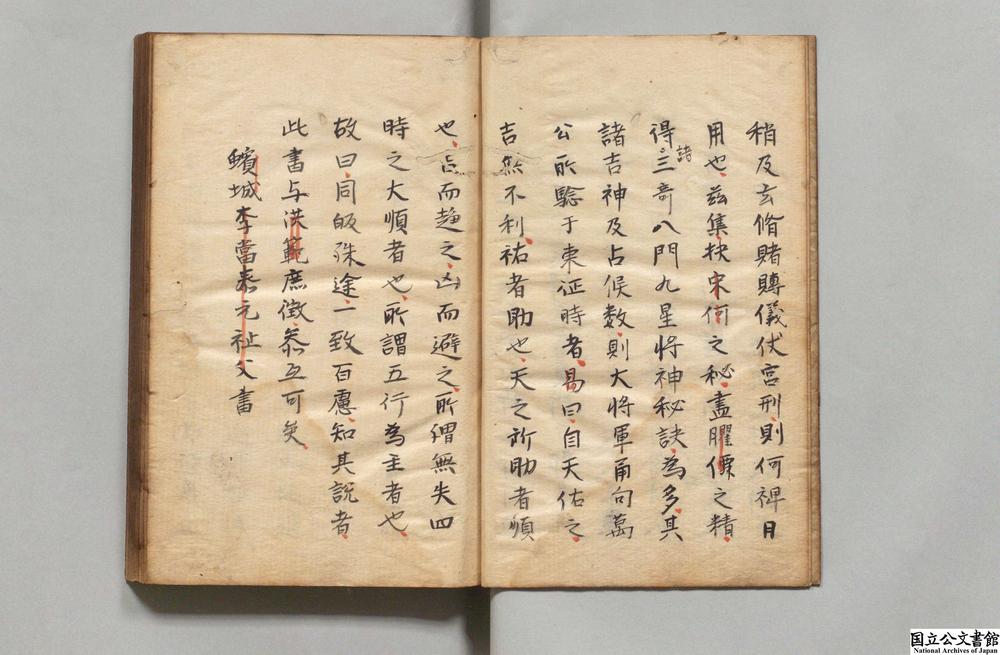 稍及玄脩賭轉儀伏宮刑則何裨日
用也茲集抉宋何之秘盡臞僊之精
得諸三奇八門九星將神秘訣為多其
諸吉神及占候数則大将軍甬句萬
公所驗于東征時者易曰自天佑之
吉無不利祐者助也天之所助者順
也吉而趨之凶而避之所謂無失四
時之大順者也所謂五行為主者也
故曰同皈殊途一致百慮知其説者
此書与洪範庶徴叅互可矣
蠙城李當泰元祉父書
国立公文書館
National Archives of Japan